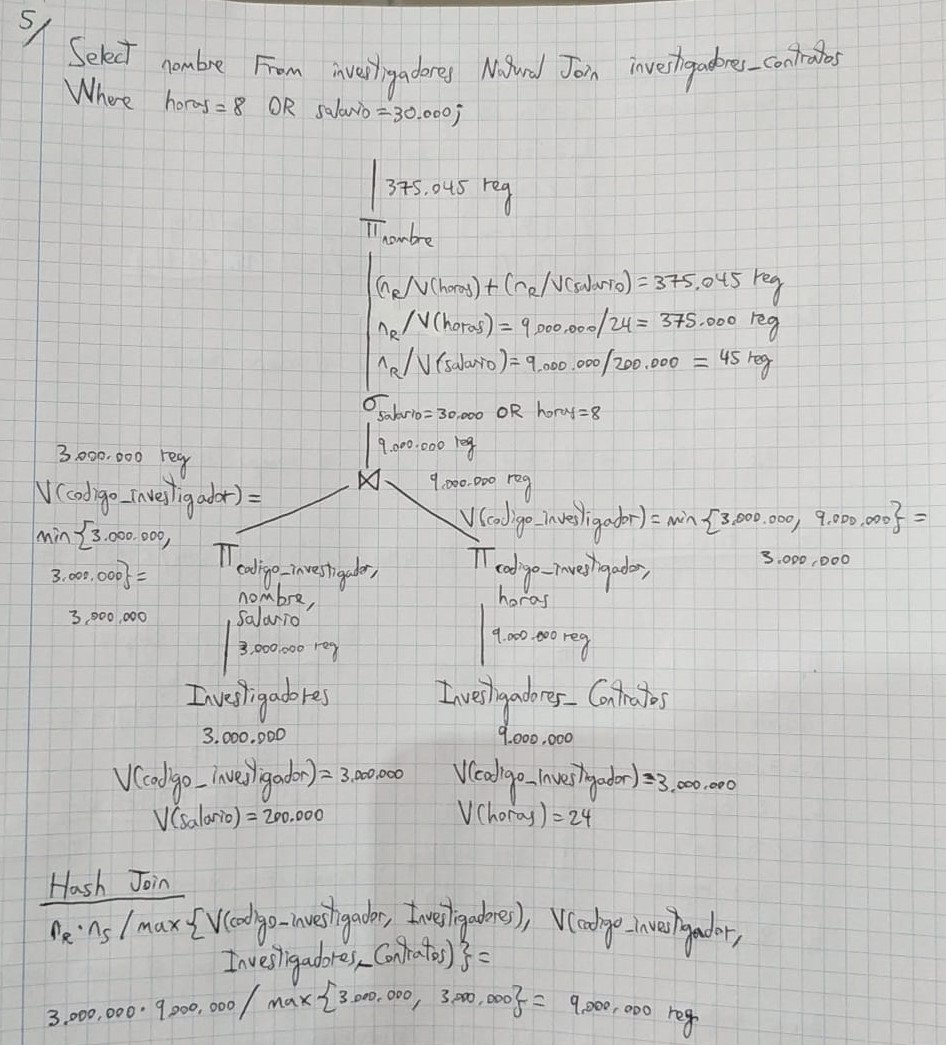 5/
Select nombre From investigadores Natural Join investigadores_contratos
Where horas = 8 OR salario = 30.000;
375.045 reg
π nombre
(nR/V(horas) + (nR/V(salario) = 375.045 reg
nR/V(horas) = 9.000.000/24 = 375.000 reg
nR/V(salario) = 9.000.000/200.000 = 45 reg
σ salario = 30.000 OR horas = 8
9.000.000 reg
⋈
3.000.000 reg
V(codigo_investigador) =
min{3.000.000,
3.000.000} =
3.000.000
9.000.000 reg
V(codigo_investigador) = min{3.000.000, 9.000.000} =
3.000.000
π codigo_investigador,
nombre,
salario
3.000.000 reg
π codigo_investigador,
horas
9.000.000 reg
Investigadores
3.000.000
V(codigo_investigador) = 3.000.000
V(salario) = 200.000
Investigadores_Contratos
9.000.000
V(codigo_investigador) = 3.000.000
V(horas) = 24
Hash Join
nR · nS / max{V(codigo_investigador, Investigadores), V(codigo_investigador,
Investigadores_Contratos)} =
3.000.000 · 9.000.000 / max{3.000.000, 3.000.000} = 9.000.000 reg